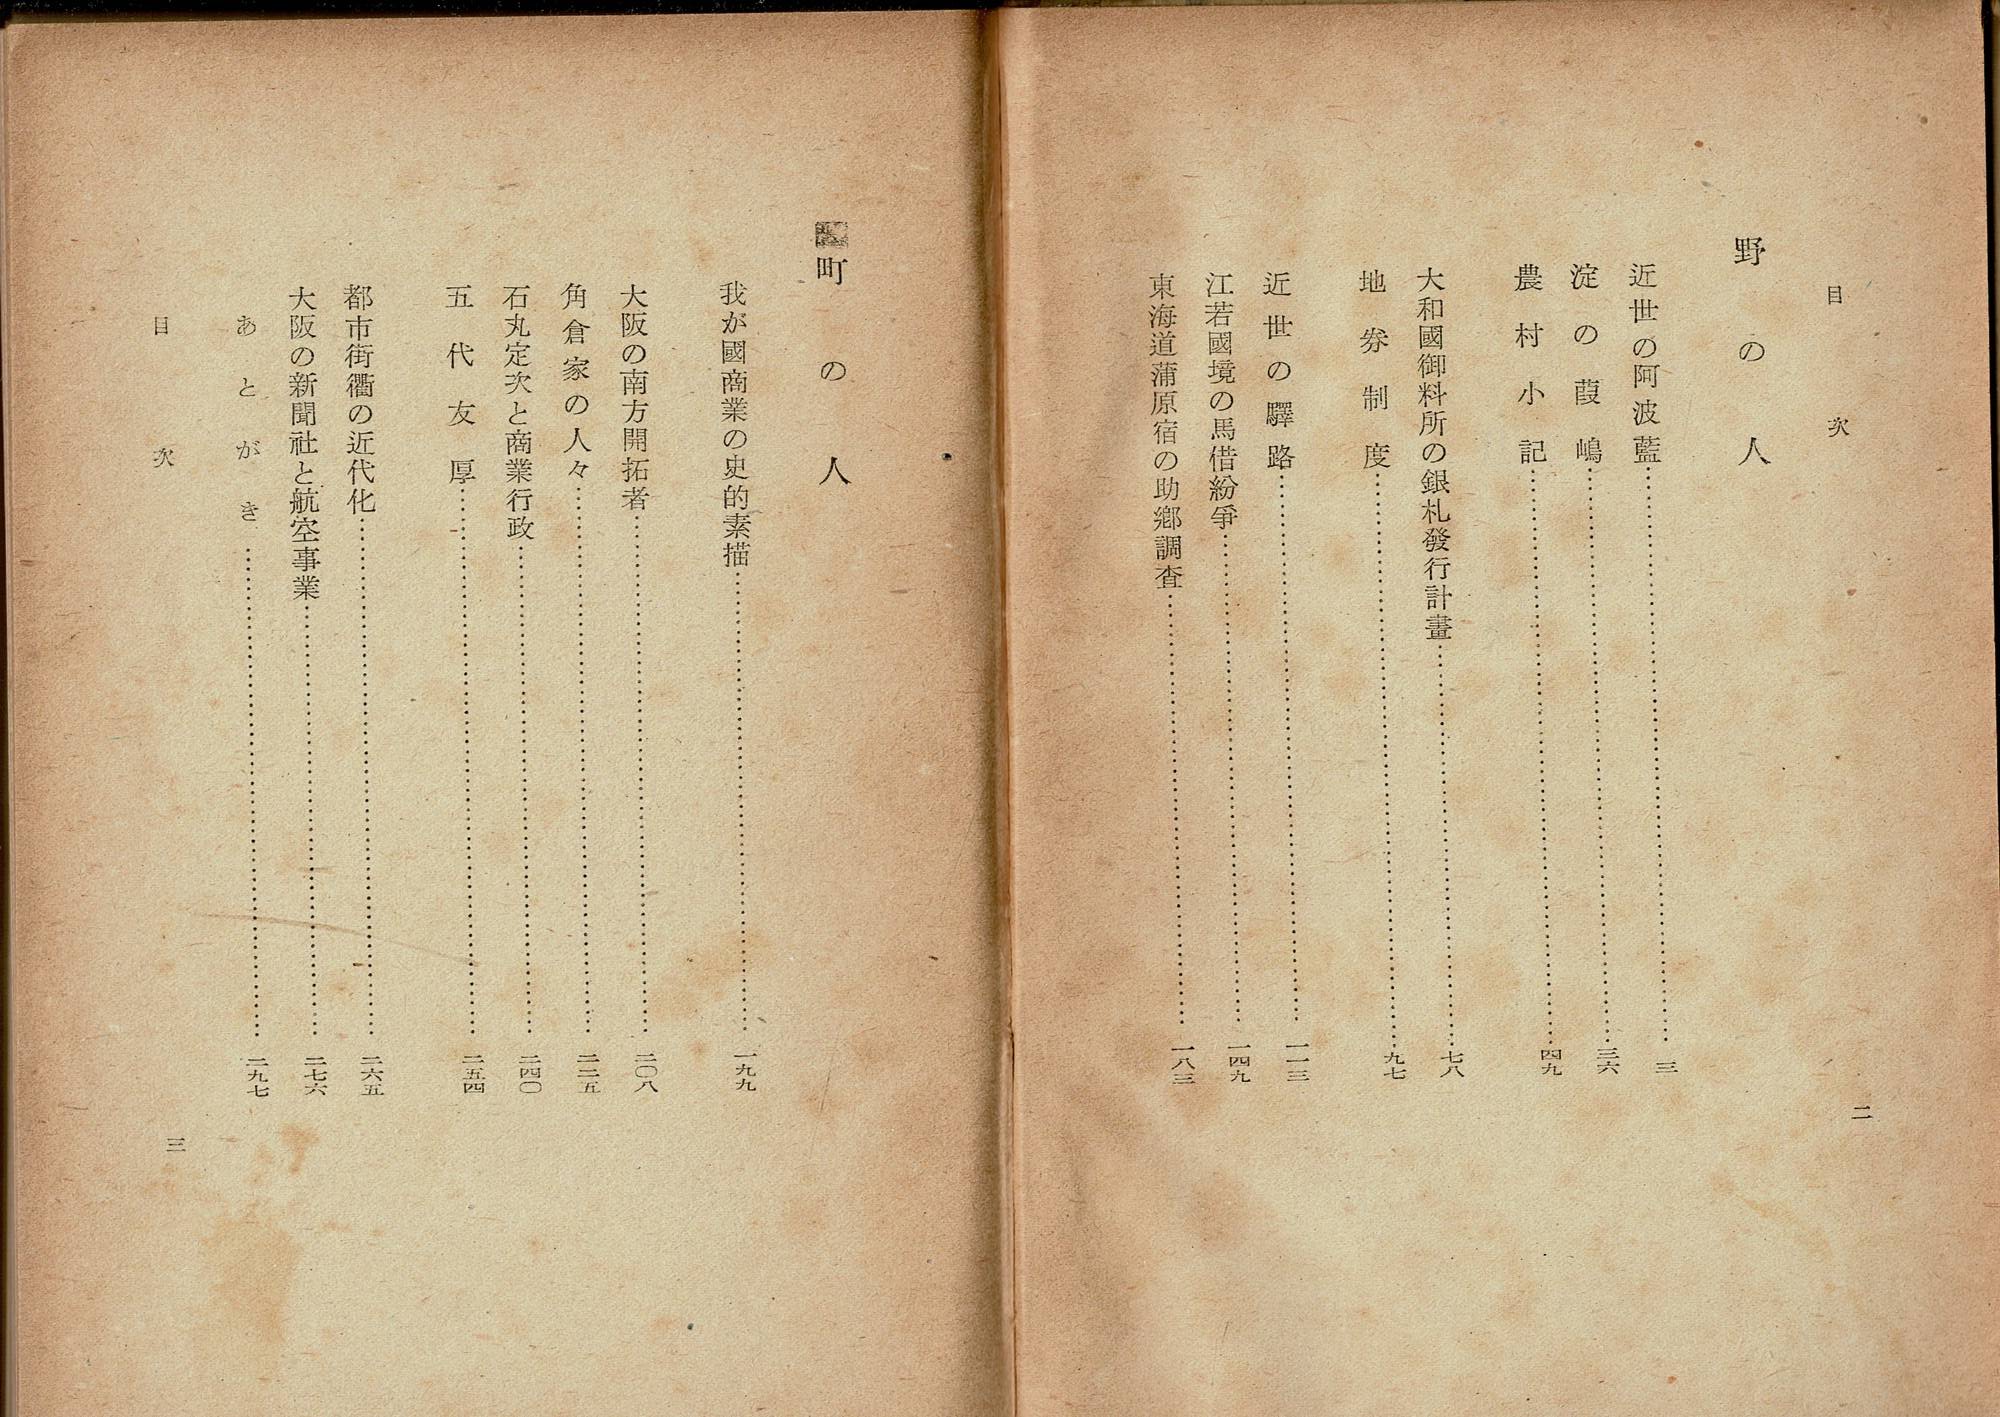 目次
野の人
近世の阿波藍……三
淀の葭嶋……三六
農村小記……四九
大和國御料所の銀札發行計畫……七八
地券制度……九七
近世の驛路……一一三
江若國境の馬借紛爭……一四九
東海道蒲原宿の助鄕調査……一八三
二
町の人
我が國商業の史的素描……一九九
大阪の南方開拓者……二〇八
角倉家の人々……二二五
石丸定次と商業行政……二四〇
五代友厚……二五四
都市街衢の近代化……二六五
大阪の新聞社と航空事業……二七六
あとがき……二九七
目次
三